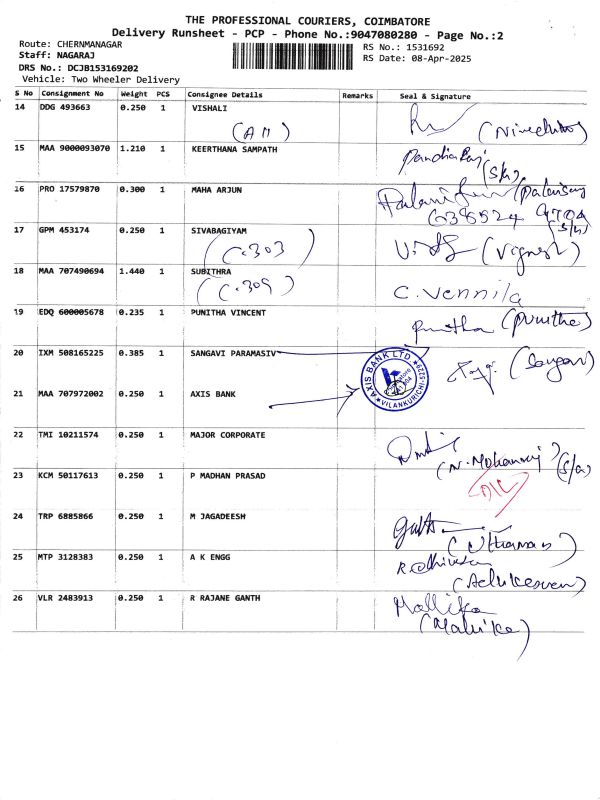 THE PROFESSIONAL COURIERS, COIMBATORE
Delivery Runsheet - PCP - Phone No.:9047080280 - Page No.:2
Route: CHERNMANAGAR
RS No.: 1531692
Staff: NAGARAJ
RS Date: 08-Apr-2025
DRS No.: DCJB153169202
Vehicle: Two Wheeler Delivery
S No Consignment No Weight PCS Consignee Details Remarks Seal & Signature
14 DDG 493663 0.250 1 VISHALI
15 MAA 9000093070 1.210 1 KEERTHANA SAMPATH
(S/n)
16 PRO 17579870 0.300 1 MAHA ARJUN
17 GPM 453174 0.250 1 SIVABAGIYAM
(C.303) (Vignesh)
18 MAA 707490694 1.440 1 SUBITHRA
(C.309) C. Vennila
19 EDQ 600005678 0.235 1 PUNITHA VINCENT
Punitha (Punitha)
20 IXM 508165225 0.385 1 SANGAVI PARAMASIV
AXIS BANK LTD
VILANKURICHI
21 MAA 707972002 0.250 1 AXIS BANK
22 TMI 10211574 0.250 1 MAJOR CORPORATE
(N. Mohanraj) (S/a)
23 KCM 50117613 0.250 1 P MADHAN PRASAD
24 TRP 6885866 0.250 1 M JAGADEESH
25 MTP 3128383 0.250 1 A K ENGG
26 VLR 2483913 0.250 1 R RAJANE GANTH
Mallika